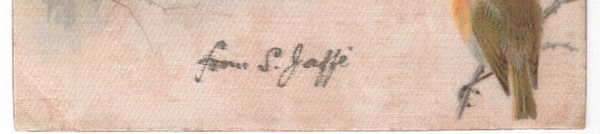 from S. Jaffé